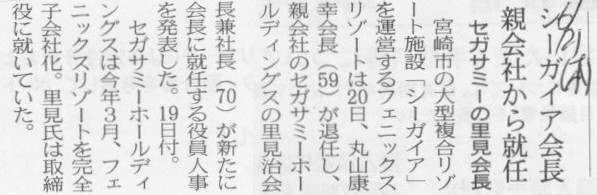 6/21(木)
シーガイア会長
親会社から就任
セガサミーの里見会長
宮崎市の大型複合リゾ
ート施設「シーガイア」
を運営するフェニックス
リゾートは20日、丸山康
幸会長（59）が退任し、
親会社のセガサミーホー
ルディングスの里見治会
長兼社長（70）が新たに
会長に就任する役員人事
を発表した。19日付。
セガサミーホールディ
ングスは今年３月、フェ
ニックスリゾートを完全
子会社化。里見氏は取締
役に就いていた。